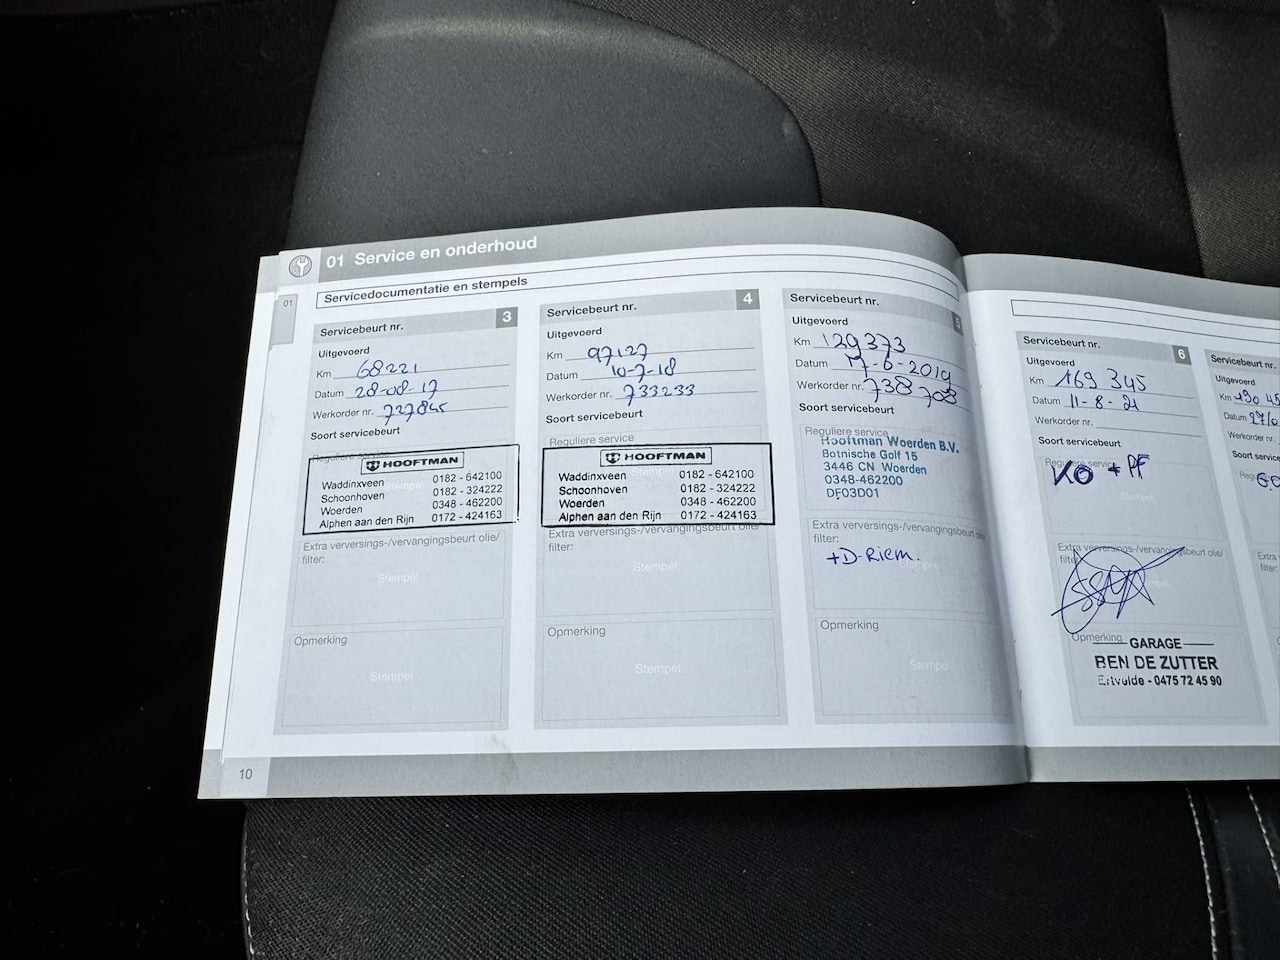 01 Service en onderhoud
01
Servicedocumentatie en stempels
Servicebeurt nr. 3
Uitgevoerd
Km 68221
Datum 28-08-17
Werkorder nr. 727845
Soort servicebeurt
Reguliere service
HOOFTMAN
Waddinxveen 0182 - 642100
Schoonhoven 0182 - 324222
Woerden 0348 - 462200
Alphen aan den Rijn 0172 - 424163
Extra verversings-/vervangingsbeurt olie/
filter:
Stempel
Opmerking
Stempel
Servicebeurt nr. 4
Uitgevoerd
Km 97127
Datum 10-7-18
Werkorder nr. 733233
Soort servicebeurt
Reguliere service
HOOFTMAN
Waddinxveen 0182 - 642100
Schoonhoven 0182 - 324222
Woerden 0348 - 462200
Alphen aan den Rijn 0172 - 424163
Extra verversings-/vervangingsbeurt olie/
filter:
Stempel
Opmerking
Stempel
Servicebeurt nr. 5
Uitgevoerd
Km 129373
Datum 17-6-2019
Werkorder nr. 738708
Soort servicebeurt
Reguliere service
Hooftman Woerden B.V.
Botnische Golf 15
3446 CN Woerden
0348-462200
DF03D01
Extra verversings-/vervangingsbeurt olie/
filter:
+D-Riem.
Stempel
Opmerking
Stempel
Servicebeurt nr. 6
Uitgevoerd
Km 169 345
Datum 11-8-21
Werkorder nr.
Soort servicebeurt
Reguliere service
KO + PF
Stempel
Extra verversings-/vervangingsbeurt olie/
filter:
Opmerking
GARAGE
BEN DE ZUTTER
Ertvelde - 0475 72 45 90
Servicebeurt nr.
Uitgevoerd
Km
Datum
Werkorder nr.
Soort service
Extra
filter:
10